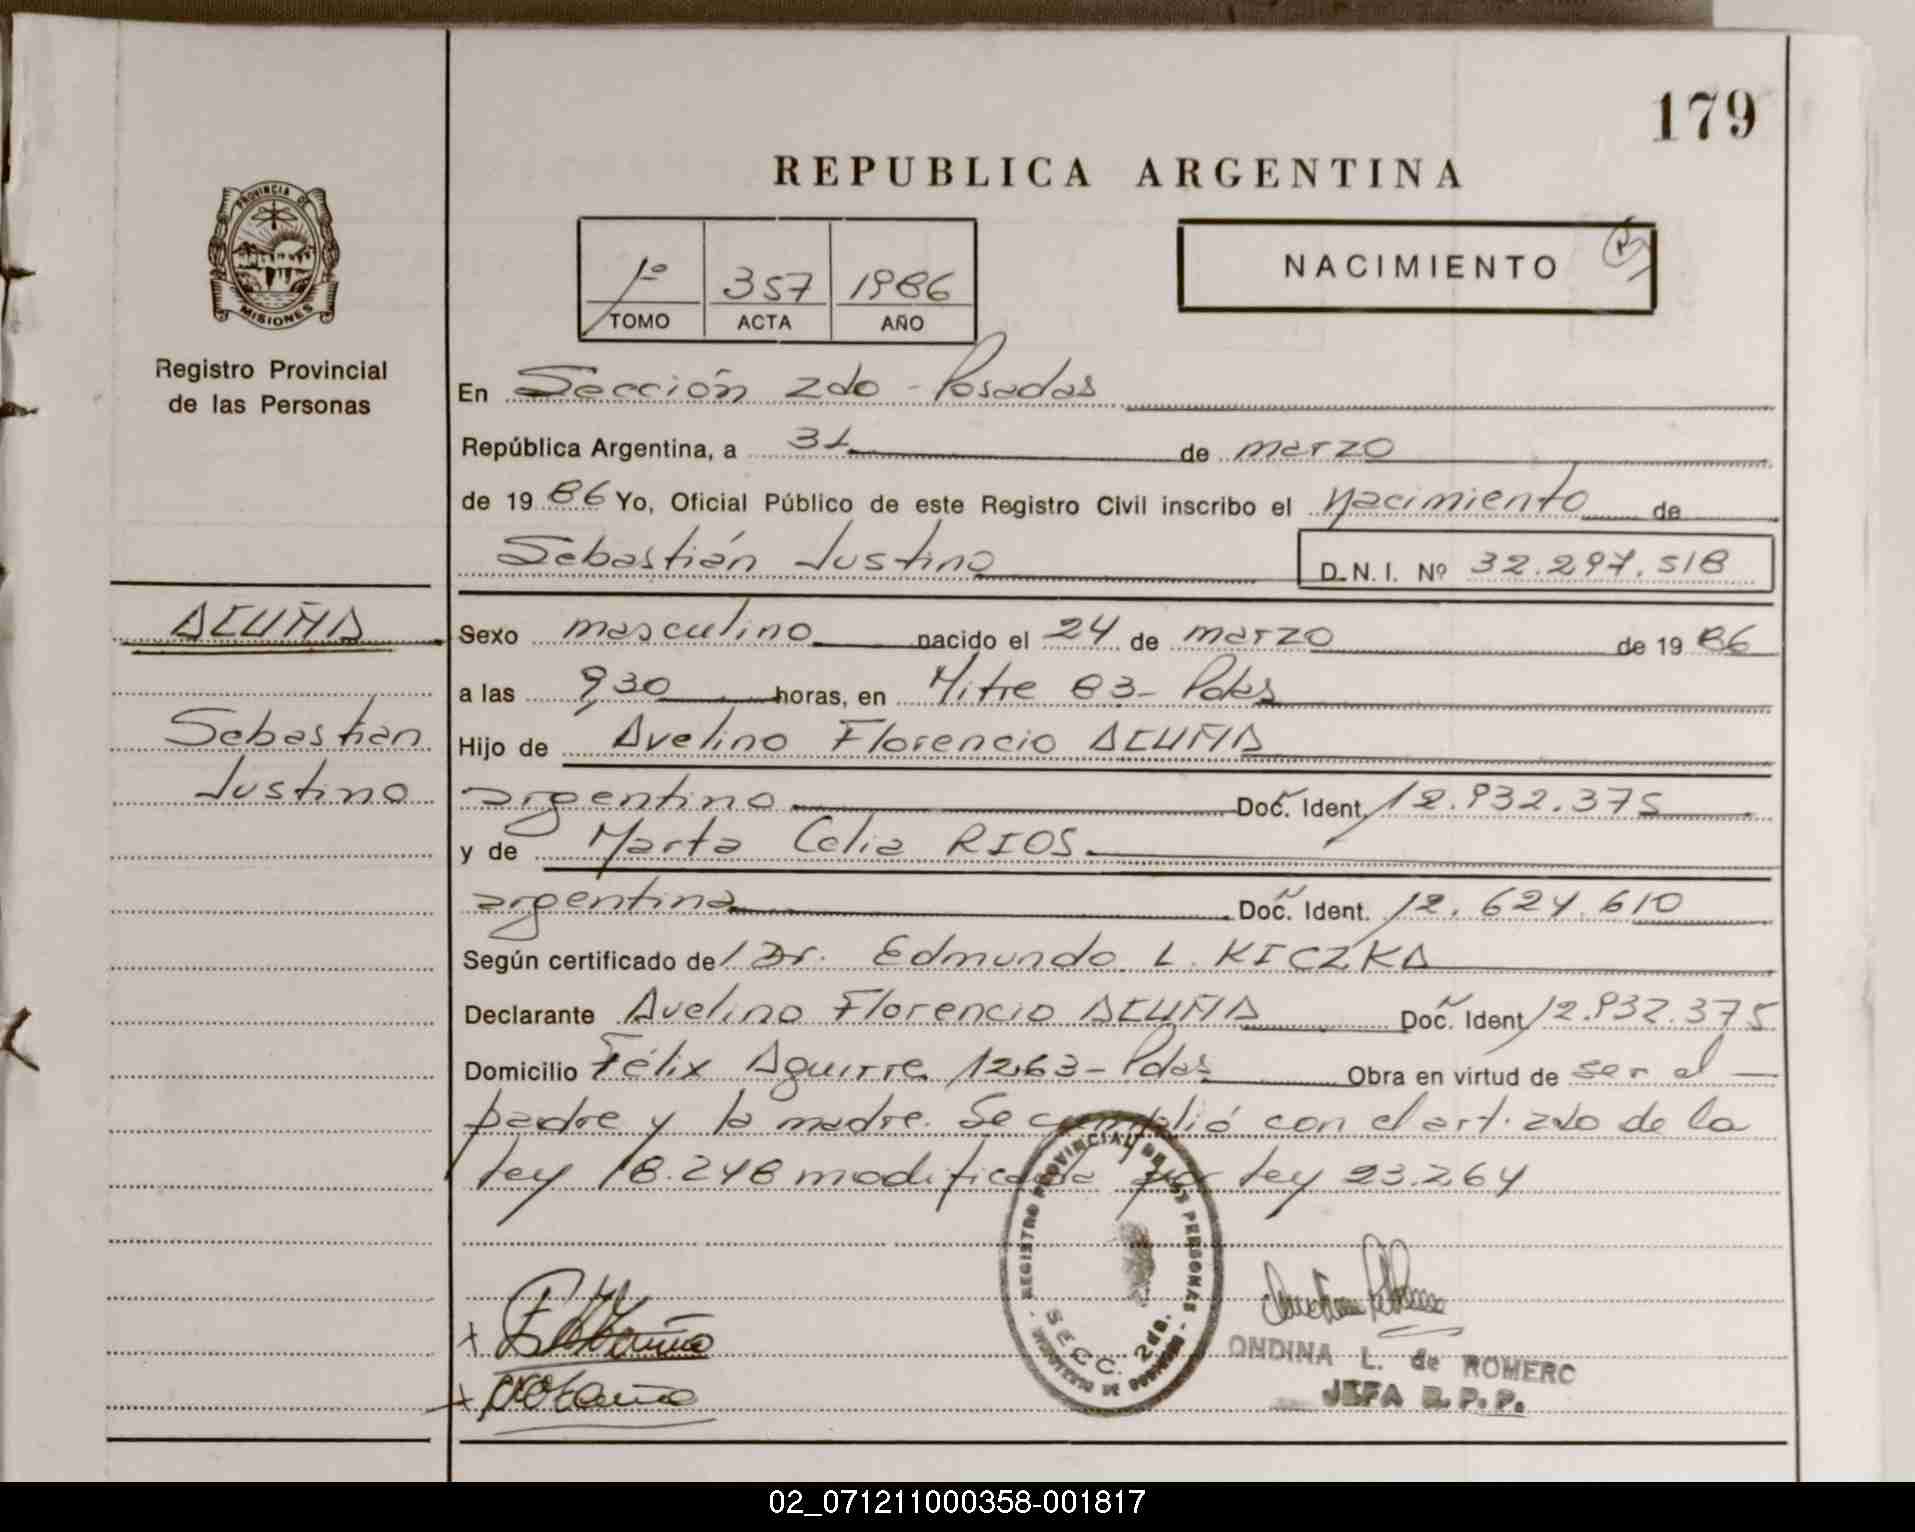 179
REPUBLICA ARGENTINA
PROVINCIA DE
MISIONES
Registro Provincial
de las Personas
1º 357 1986
TOMO ACTA AÑO
NACIMIENTO
En Sección 2do - Posadas
República Argentina, a 31 de marzo
de 1986 Yo, Oficial Público de este Registro Civil inscribo el nacimiento de
Sebastián Justino D.N.I. Nº 32.297.518
ACUÑA
Sebastian
Justino
Sexo masculino nacido el 24 de marzo de 1986
a las 9,30 horas, en Mitre 83 - Pdas
Hijo de Avelino Florencio ACUÑA
argentino Doc. Ident. 12.932.375
y de Marta Celia RIOS
argentina Doc. Ident. 12.624.610
Según certificado de Dr. Edmundo L. KICZKA
Declarante Avelino Florencio ACUÑA Doc. Ident. 12.932.375
Domicilio Félix Aguirre 1263 - Pdas Obra en virtud de ser el
padre y la madre. Se cumplió con el art. 2do de la
ley 18.248 modificada por ley 23.264
REGISTRO PROVINCIAL DE LAS PERSONAS
SECC. 2da.
MINISTERIO DE GOBIERNO
ONDINA L. de ROMERO
JEFA R.P.P.
02_071211000358-001817